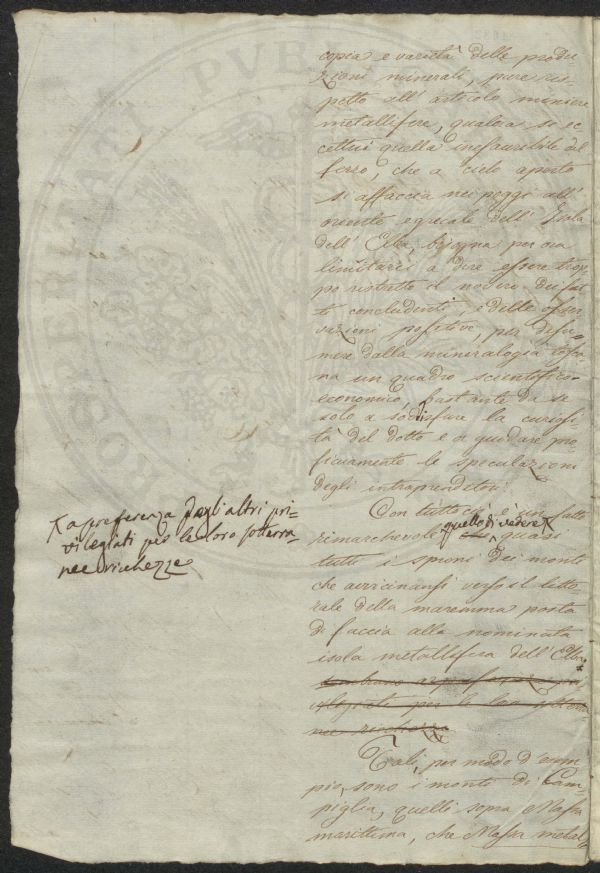 copia e varietà delle produ
zioni minerali, pure ris
petto all' articolo miniere
metallifere, qualora si ec
cettui quella inesauribile del
ferro, che a cielo aperto
si affaccia nei poggi all'
oriente egrecale dell' Isola
dell' Elba, bisogna per ora
limitarci a dire essere trop
po ristretto il novero dei fat
ti concludenti, e delle osser
vazioni positive, per desu
mere dalla mineralogia tosca
na un quadro scientifico-
economico, bastante da se
solo a sodisfare la curiosi
tà del dotto e a guidare pro
ficuamente le speculazioni
degli intraprenditori.
Con tutto ciò è un fatto
rimarchevole quello di vedere X quasi
tutti i sproni dei monti
che avvicinansi verso il litto
rale della maremma posta
di faccia alla nominata
isola metallifera dell' Elba
privilegiati per le loro sotterra
nee ricchezze
X a preferenza degli altri pri-
vilegiati per le loro sotterra-
nee ricchezze
Tali, per modo d'esem
pio, sono i monti di Cam-
piglia, quelli sopra Massa
marittima, che Massa metal-